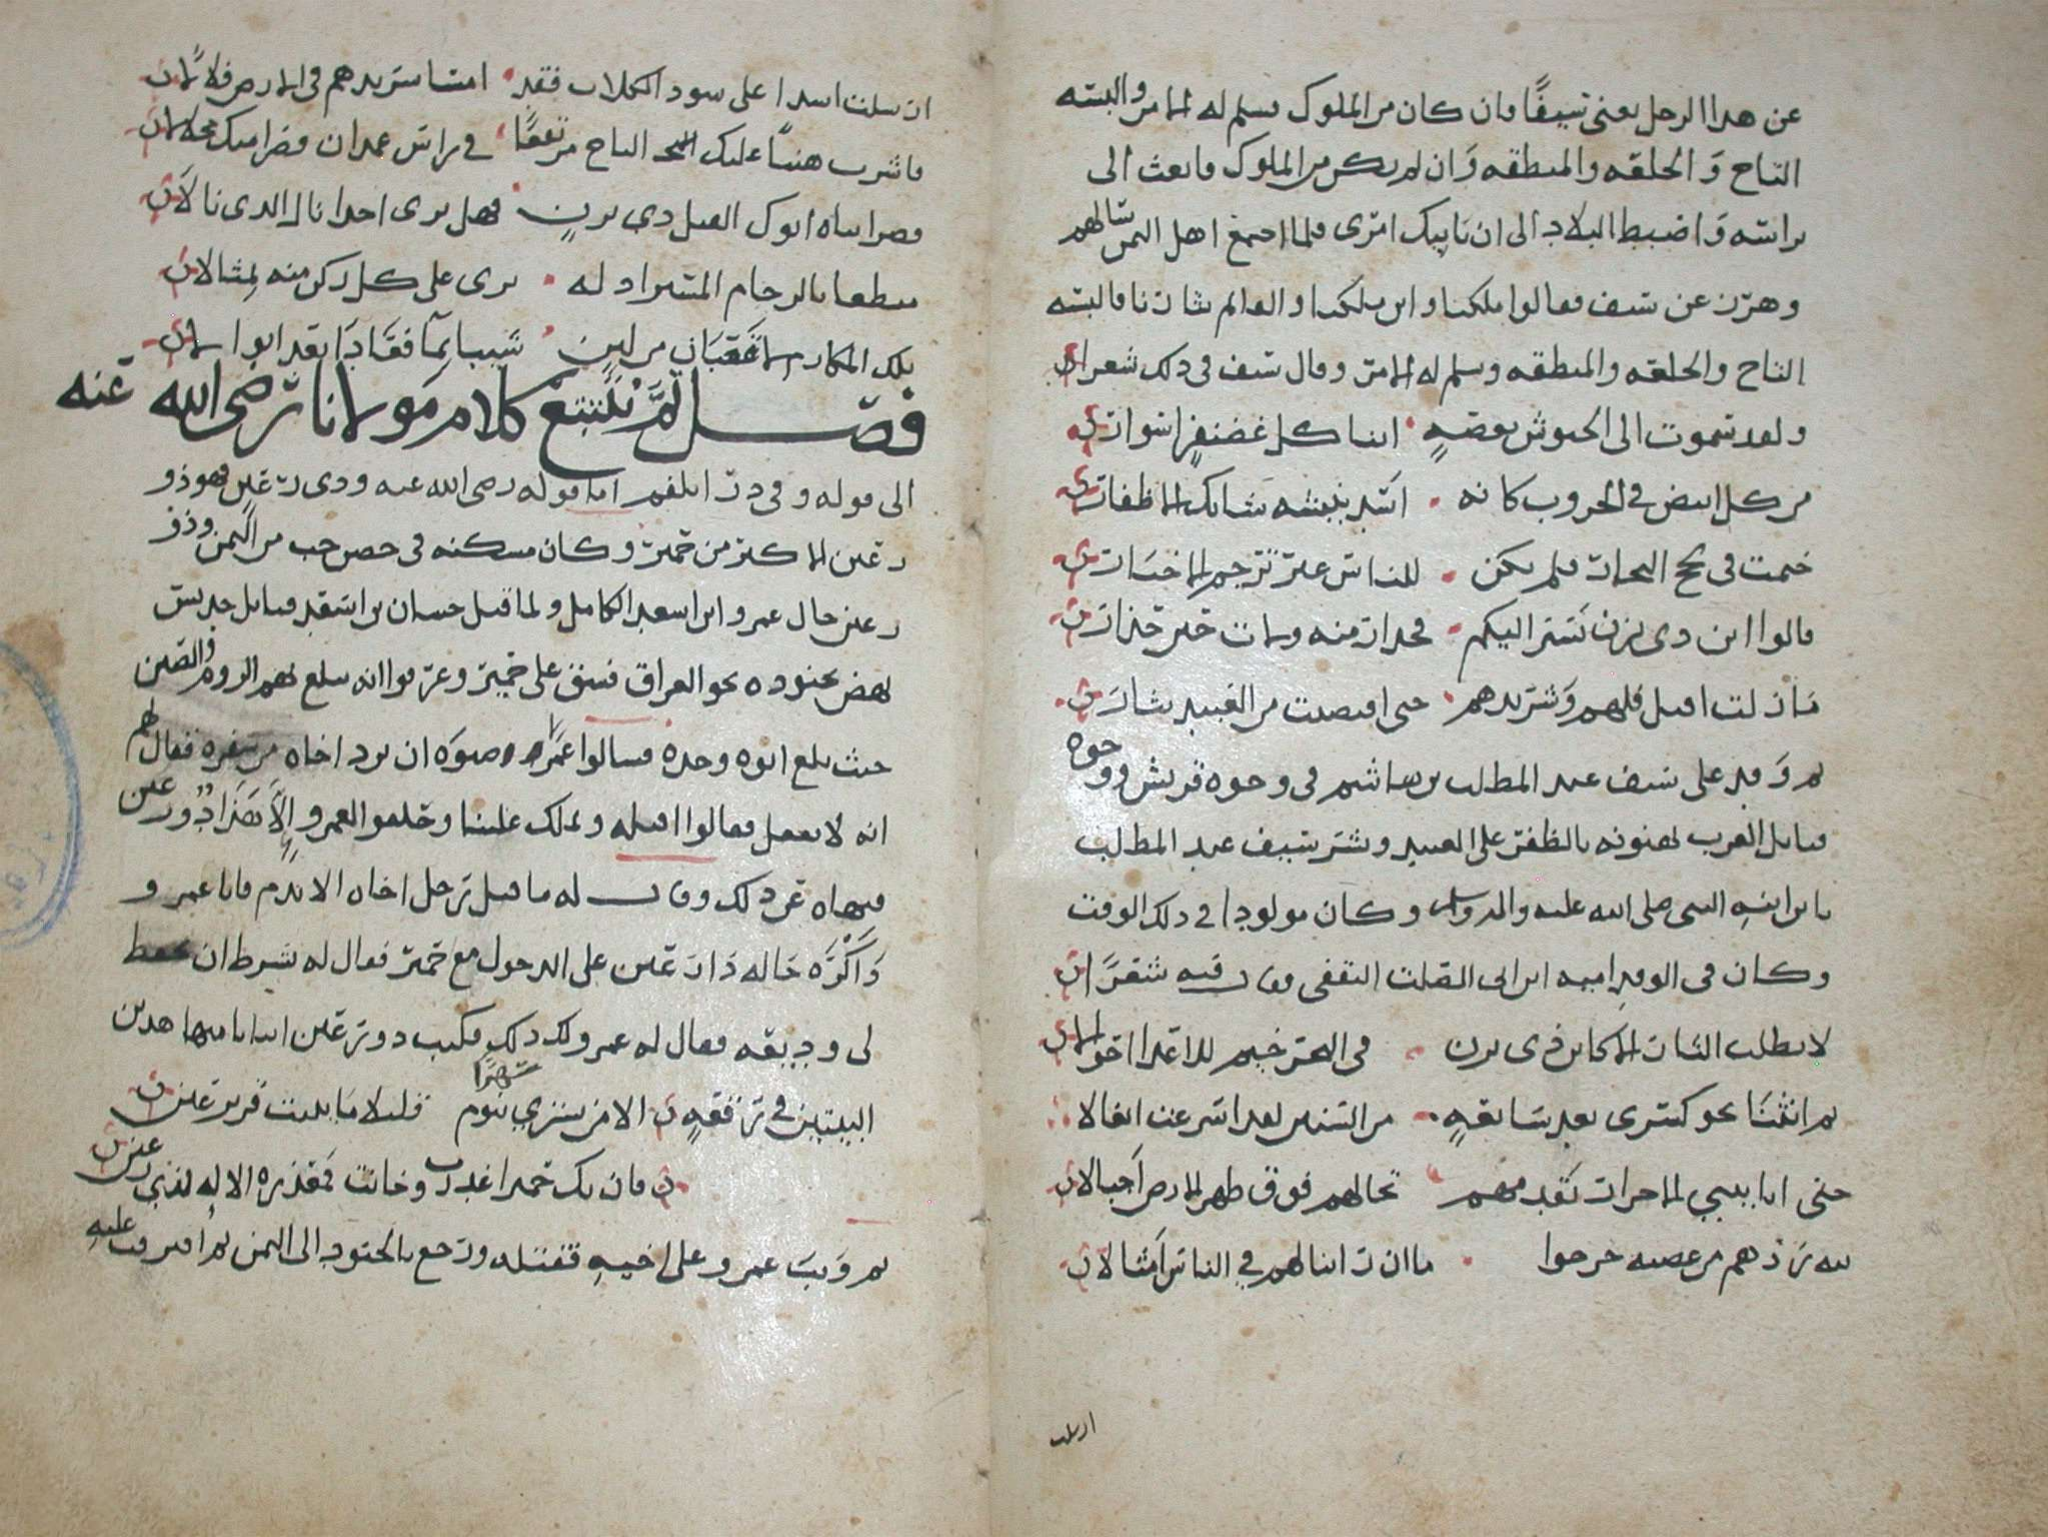 عن هذا الرجل يعني سيفًا فان كان من الملوك فسلم له الامر والبسه
التاج و الحلقه والمنطقه وان لم يكن من الملوك فابعث الي
براسه واضبط البلاد الى ان ياتيك امري فلما اجتمع اهل اليمن سالهم
وهرز عن سيف فقالوا ملكنا وابن ملكنا والقائم بثارنا فالبسه
التاج والحلقه والمنطقه وسلم له الامر وقال سيف في ذلك شعرا
ولقد سموت الى الحبوش بعصبةٍ ابنا كل غضنفرٍ اسوار
من كل ابيض في الحروب كانه اسد شابك الاظفار
خيمت في لجج البحار فلم يكن للناس غير ترجم الاخبار
قالوا ابن ذي يزن يسير اليكم فحذار منه ولات حين حذار
مازلت اقتل فلهم وشريدهم حتى اقتصيت من العبيد بثار
ثم وفد على سيف عبد المطلب بن هاشم في وجوه قريش ووجوه
قبايل العرب يهنونه بالظفر على العبيد وبشر سيف عبد المطلب
بابن ابنه النبي صلى الله عليه واله وسلم وكان مولودا في ذلك الوقت
وكان في الوفد اميه ابن ابي الصلت الثقفي وقال فيه شعرًا
لا يطلب الثار الا كابن ذي يزن في البحر خيم للاعدا احوالا
ثم انثنا نحو كسرى بعد سابعةٍ من السنين لقد اسرعت ايغالا
حتى اتا ببني الاحرار يقدمهم تخالهم فوق ظهر الارض اجبالا
لله درهم من عصبه خرجوا ما ان راينا لهم في الناس امثالا
ارسلت
ان سلت اسدا على سود الكلاب فقد امسا شريدهم في الارض فلالا
فاشرب هنيًا عليك التاج مرتفقًا في راس غمدان قصرا منك محلالا
قصرا بناه ابوك القيل ذي يزنٍ فهل يرى احدا نال الذي نالا
منطقا بالرخام المستزاد له يرى على كل ركن منه تمثالا
تلك المكارم لا قعبان من لبن شيبا بمآ فعادا بعد ابوالا
فصل ثم نتتبع كلام مولانا رضي الله عنه
الى قوله رضي الله عنه وذي رعين فهو ذو
رعين الاكبر من حمير وكان مسكنه في حصن حب من اليمن وذو
رعين خال عمرو ابن اسعد الكامل ولما قتل حسان بن اسعد قبايل جديس
نهض بجنوده نحو العراق فشق على حمير وعرفوا انه سلغ بهم الروم والصين
حيث بلغ ابوه وجده فسالوا عمرا ان يرد اخاه من سفره فقال لهم
انه لا يفعل فقالوا اقتله وتملك علينا وحلفوا لعمرو الا ذو رعين
فنهاه عن ذلك وقال له ما قتل رجل اخاه الا ندم فابا عمرو
واكره خاله ذا رعين على الدخول مع حمير فقال له بشرط ان تحفظ
لي وديعه فقال له عمرو لك ذلك فكتب ذو رعين ابياتا منها هذين
البيتين في رقعةٍ الا من يشتري سهرًا بنوم قليلا ما يبيت قرير عين
فان يك حميرا غدرت وخانت فمعذره الاله لذي رعين
ثم وثب عمرو على اخيه فقتله ورجع بالجنود الى اليمن ثم افترقت عليه